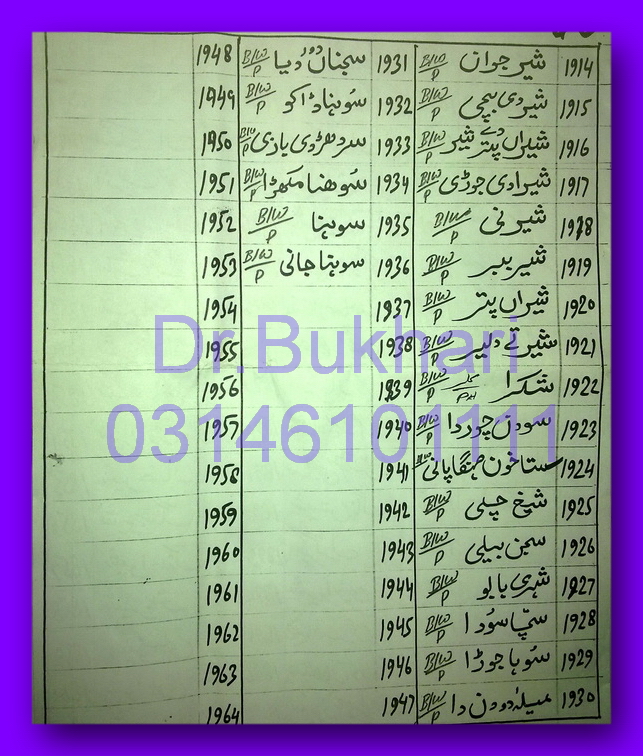 1914 شیر جوان B/W P
1915 شیر دی بچی B/W P
1916 شیراں دے پتر شیر B/W P
1917 شیرا دی جوڑی B/W P
1918 شیرنی B/W P
1919 شیر ببر B/W P
1920 شیراں پتر B/W P
1921 شیر تے دلیر B/W P
1922 شکرا B/W P
1923 سو دن چور دا B/W P
1924 سستا خون مہنگا پانی
1925 شیخ چلی B/W P
1926 سجن بیلی B/W P
1927 شہری بابو B/W P
1928 سچا سودا B/W P
1929 سوہا جوڑا B/W P
1930 میلہ دو دن دا B/W P
1931 سجناں دور دیا B/W P
1932 سوہنا ڈاکو B/W P
1933 سر دھڑ دی بازی B/W P
1934 سوھنا مکھڑا B/W P
1935 سوہنا B/W P
1936 سوہنا جانی B/W P
1937
1938
1939
1940
1941
1942
1943
1944
1945
1946
1947
1948
1949
1950
1951
1952
1953
1954
1955
1956
1957
1958
1959
1960
1961
1962
1963
1964
Dr.Bukhari
03146101111